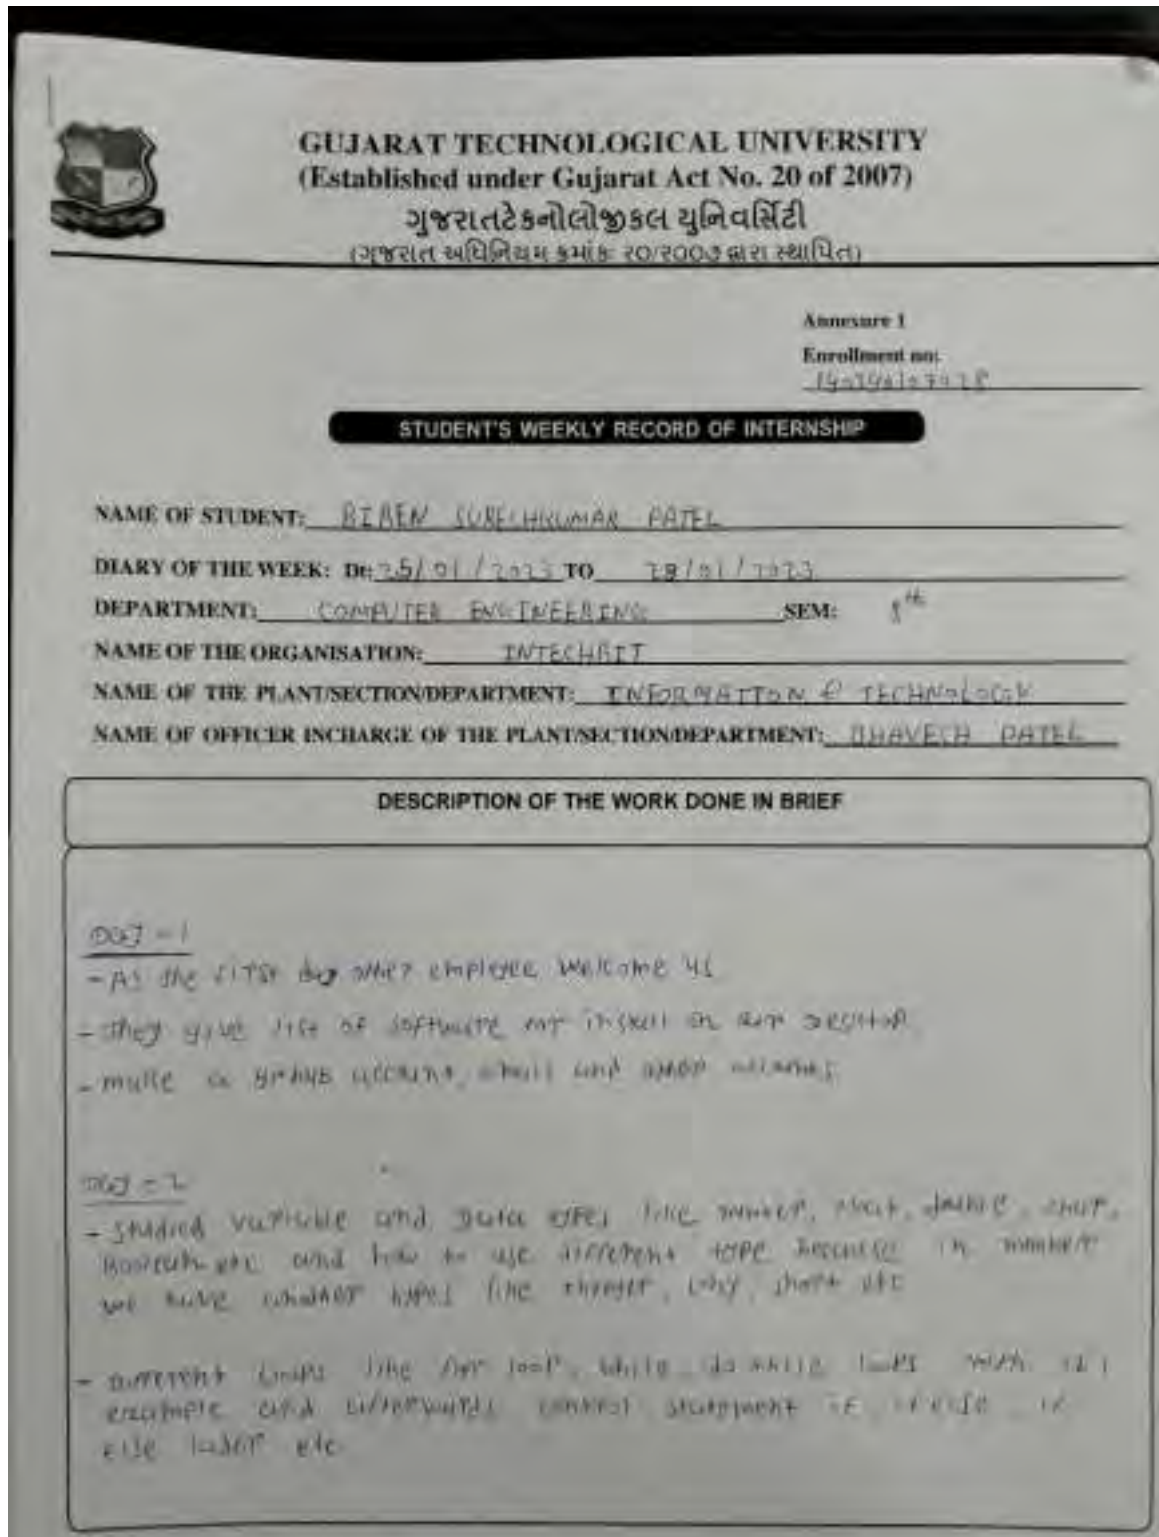 GUJARAT TECHNOLOGICAL UNIVERSITY
(Established under Gujarat Act No. 20 of 2007)
ગુજરાતટેકનોલોજીકલ યુનિવર્સિટી
(ગુજરાત અધિનિયમ ક્રમાંક: ૨૦/૨૦૦૭ દ્વારા સ્થાપિત)
Annexure 1
Enrollment no:
STUDENT'S WEEKLY RECORD OF INTERNSHIP
NAME OF STUDENT: PATEL
DIARY OF THE WEEK: Dt: 25/01/2023 TO /01/2023
DEPARTMENT: COMPUTER ENGINEERING SEM: 8th
NAME OF THE ORGANISATION: INTECHBIT
NAME OF THE PLANT/SECTION/DEPARTMENT: INFORMATION & TECHNOLOGY
NAME OF OFFICER INCHARGE OF THE PLANT/SECTION/DEPARTMENT: BHAVESH PATEL
DESCRIPTION OF THE WORK DONE IN BRIEF
Day - 1
- As the first day other employee welcome us
- They give list of software install on
- make a account, and
Day - 2
- Studied variable and data types like number, double, char,
etc and how to use different type because in number
we have types like short etc
- Different loops like for loop, while, do while loops with
example and afterwards control statement if
else etc